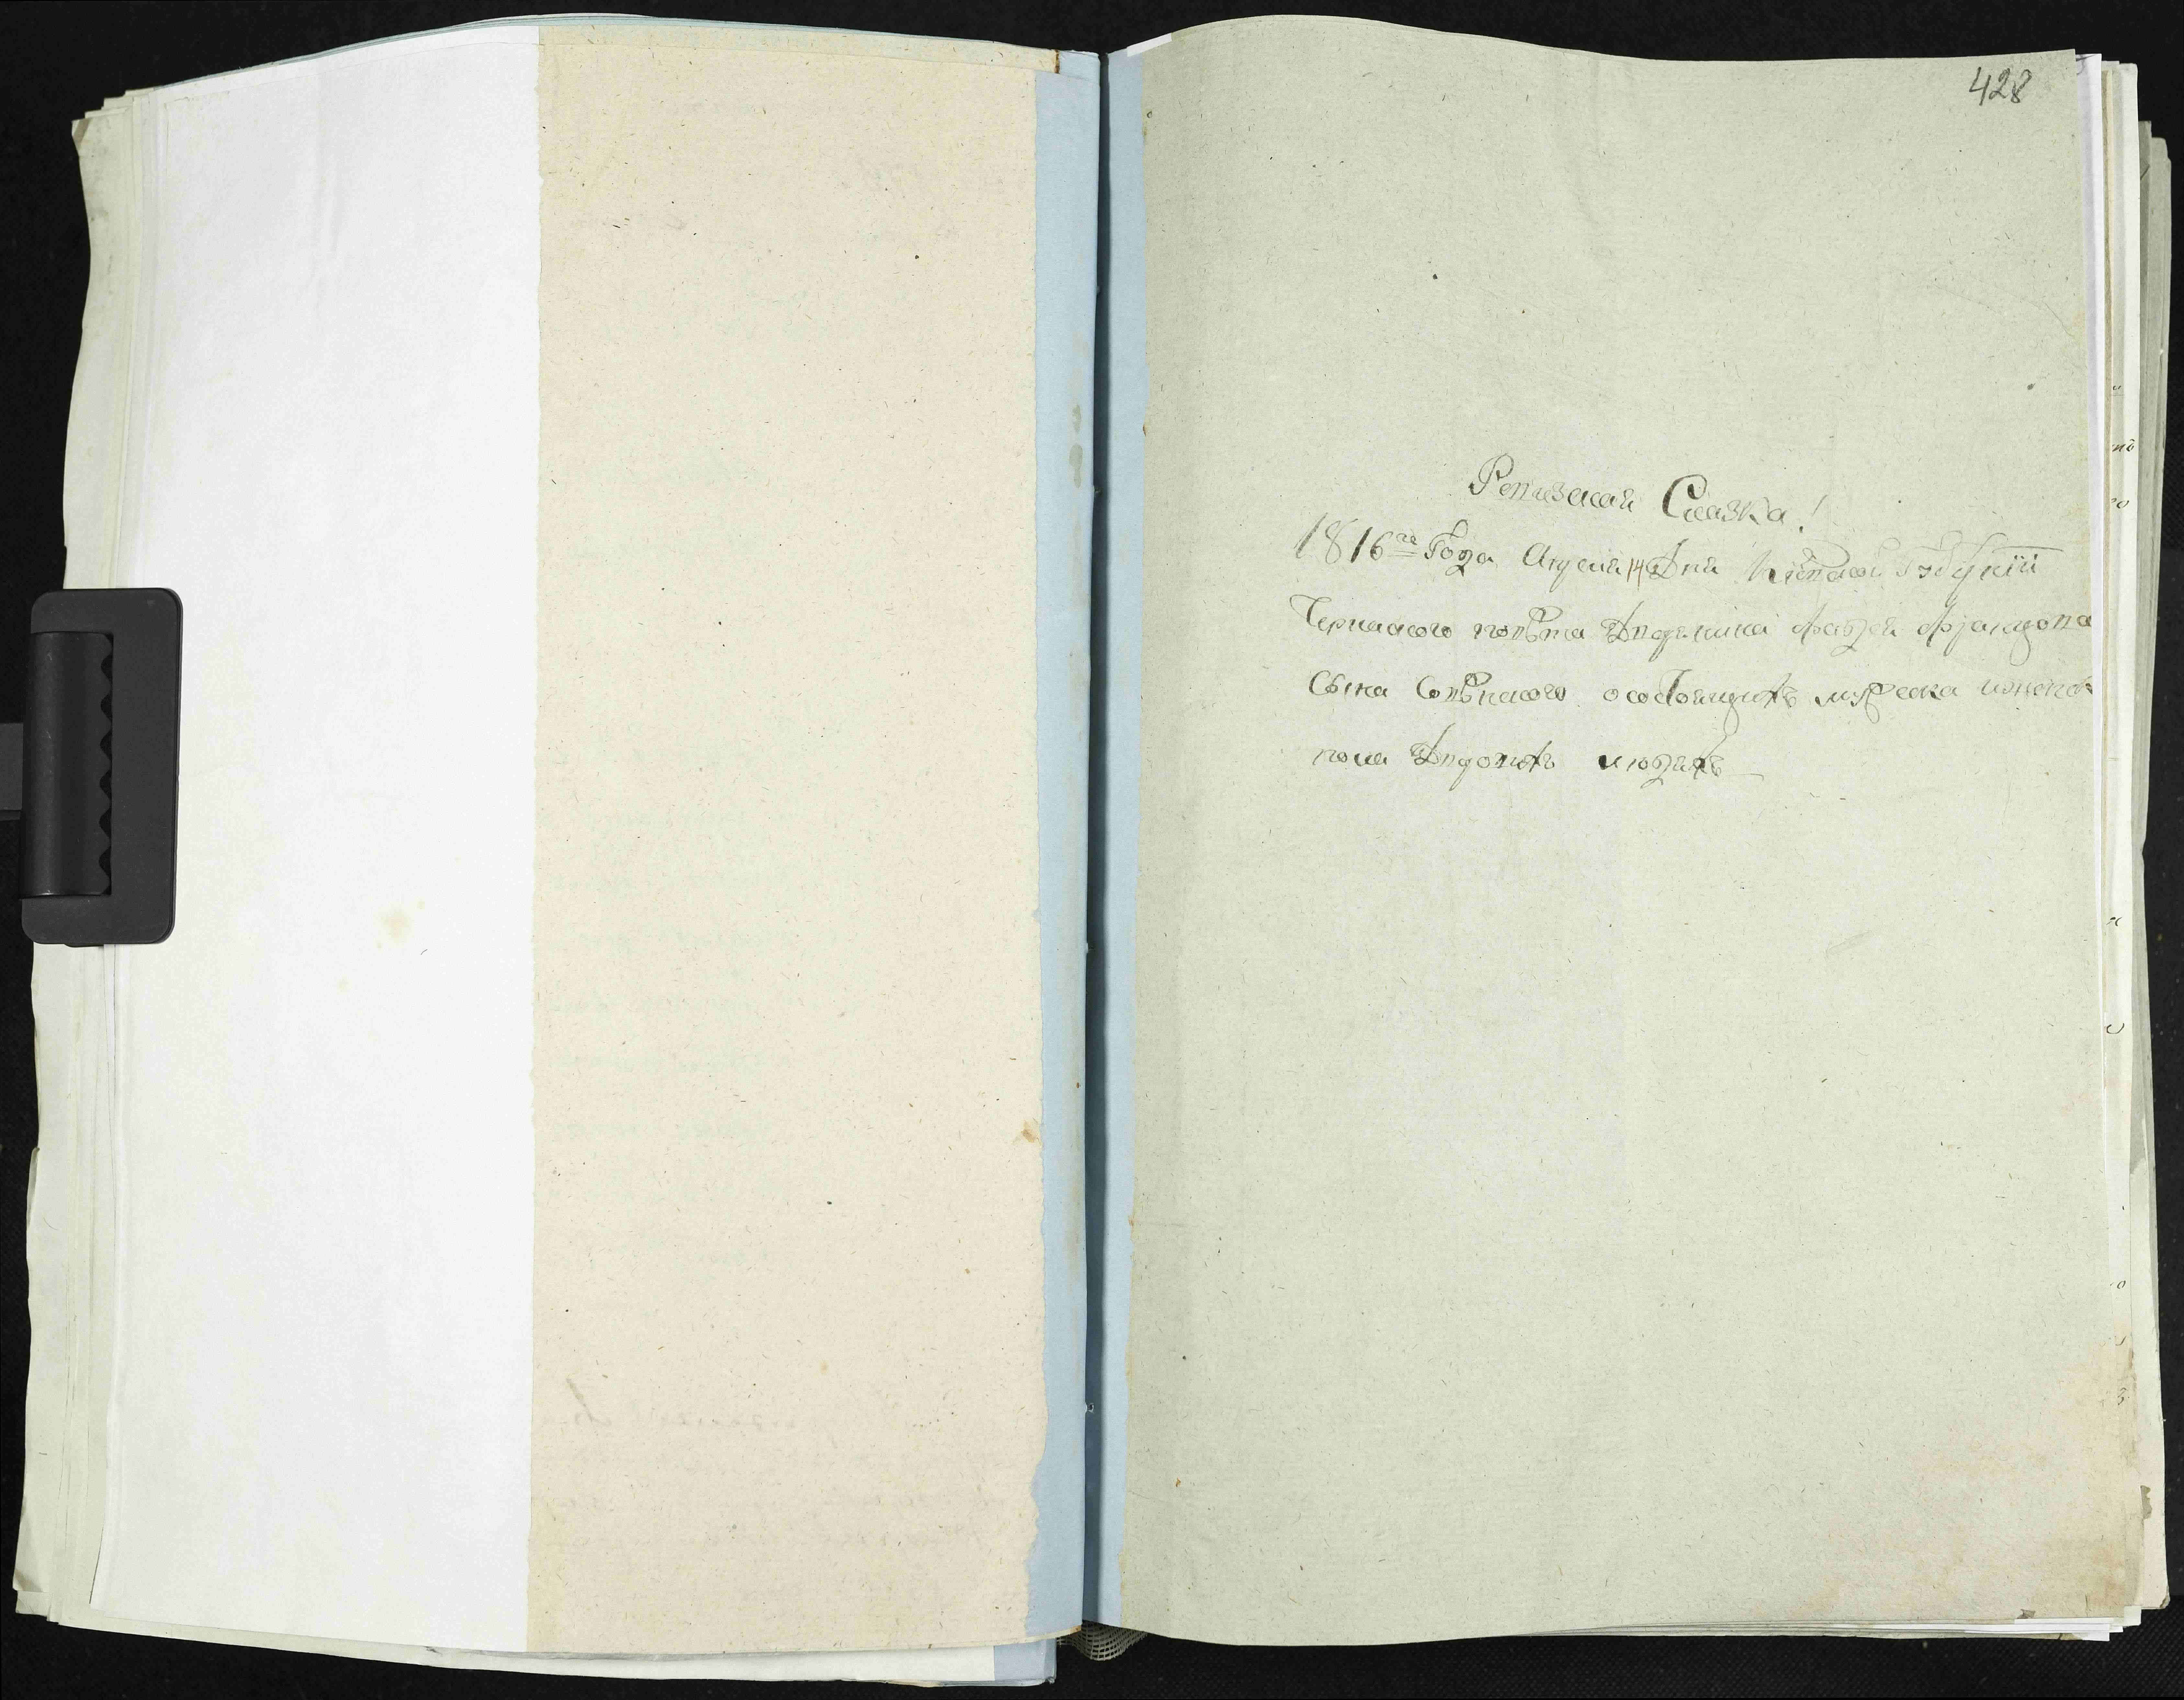 428
Ревизская Сказка!
1816го Года Апреля 14 Дня Киевской Губернїи
Черкаского повѣта Дворянина Фадея
Сына осостоящихъ мужеска иженск
пола Дворовыхъ людехъ